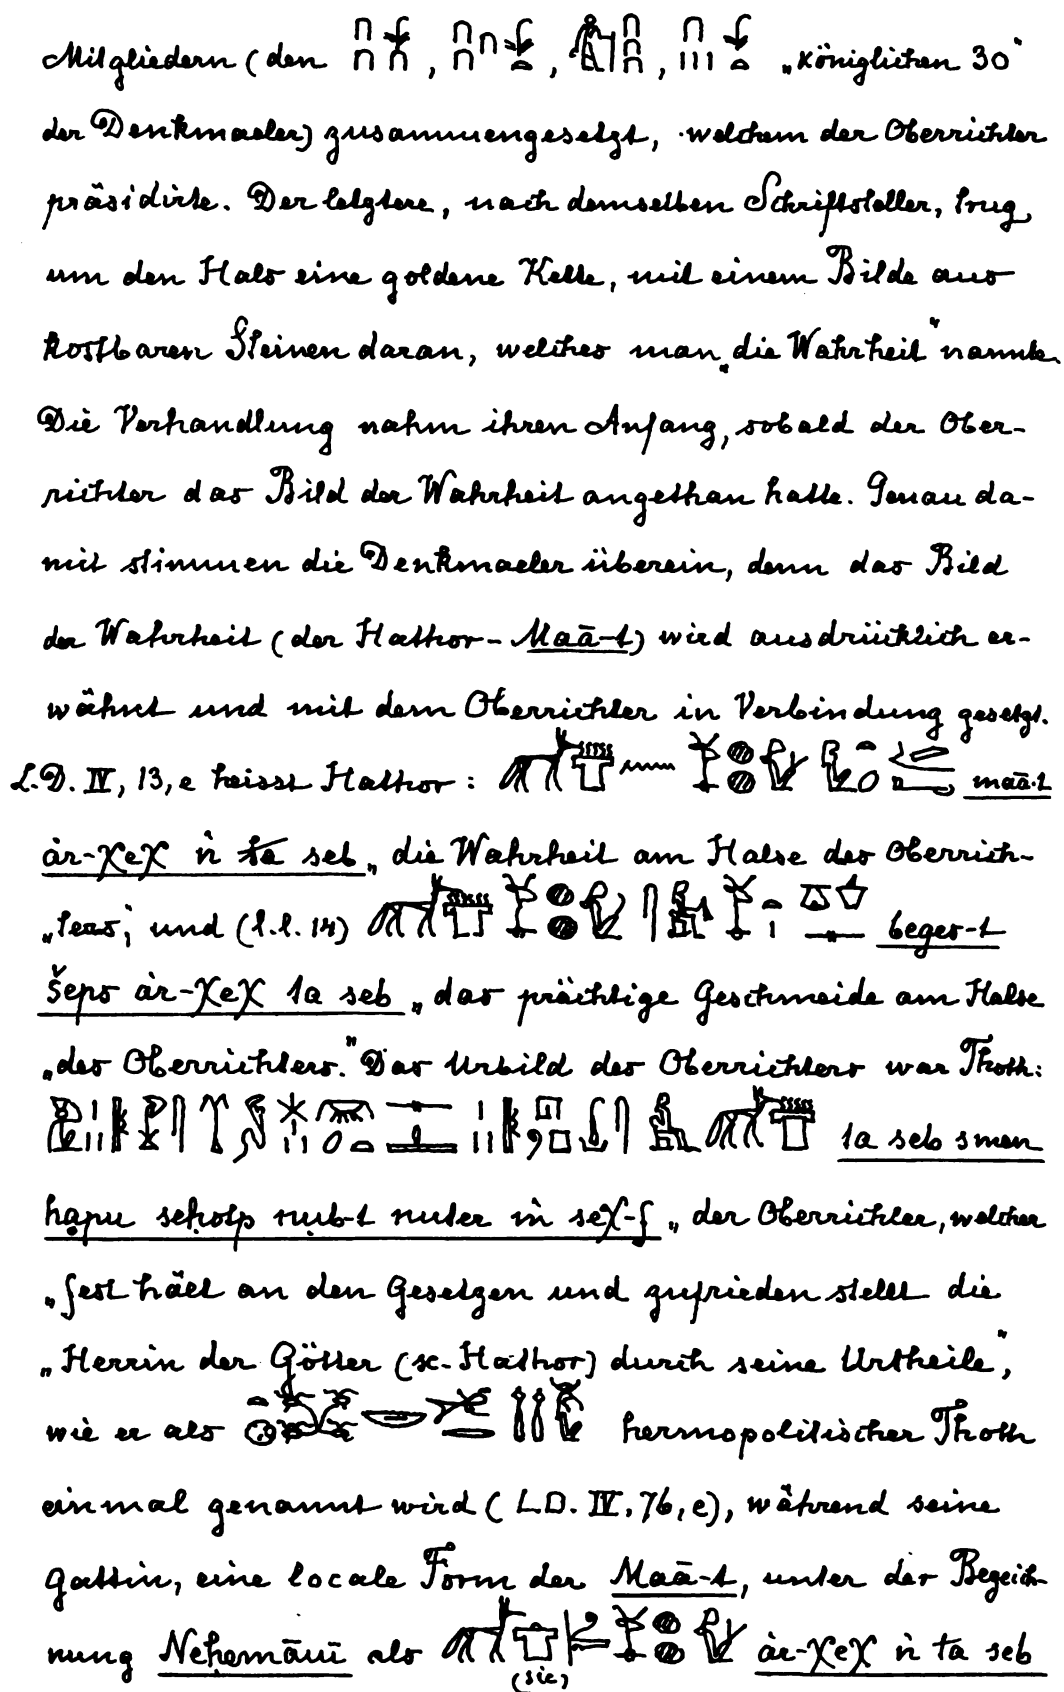 Mitgliedern (den , , , „königlichen 30“
der Denkmaeler) zusammengesetzt, welchem der Oberrichter
präsidirte. Der letztere, nach demselben Schriftsteller, trug
um den Hals eine goldene Kette, mit einem Bilde aus
kostbaren Steinen daran, welches man „die Wahrheit“ nannte.
Die Verhandlung nahm ihren Anfang, sobald der Ober-
richter das Bild der Wahrheit angethan hatte. Genau da-
mit stimmen die Denkmaeler überein, denn das Bild
der Wahrheit (der Hathor-Maā-t) wird ausdrücklich er-
wähnt und mit dem Oberrichter in Verbindung gesetzt.
L.D. IV, 13, e heisst Hathor: maā-t
àr-χeχ ǹ ta seb „die Wahrheit am Halse des Oberrich-
„ters“, und (l.l. 14) beges-t
šeps àr-χeχ ta seb „das prächtige Geschmeide am Halse
„des Oberrichters.“ Das Urbild des Oberrichters war Thoth:
ta seb smen
hapu sehotp nub-t nuter m seχ-f „der Oberrichter, welcher
„fest hält an den Gesetzen und zufrieden stellt die
„Herrin der Götter (sc. Hathor) durch seine Urtheile“,
wie er als hermopolitischer Thoth
einmal genannt wird (L.D. IV, 76, e), während seine
Gattin, eine locale Form der Maā-t, unter der Bezeich-
nung Neḥemāuī als àr-χeχ ǹ ta seb
(sic)